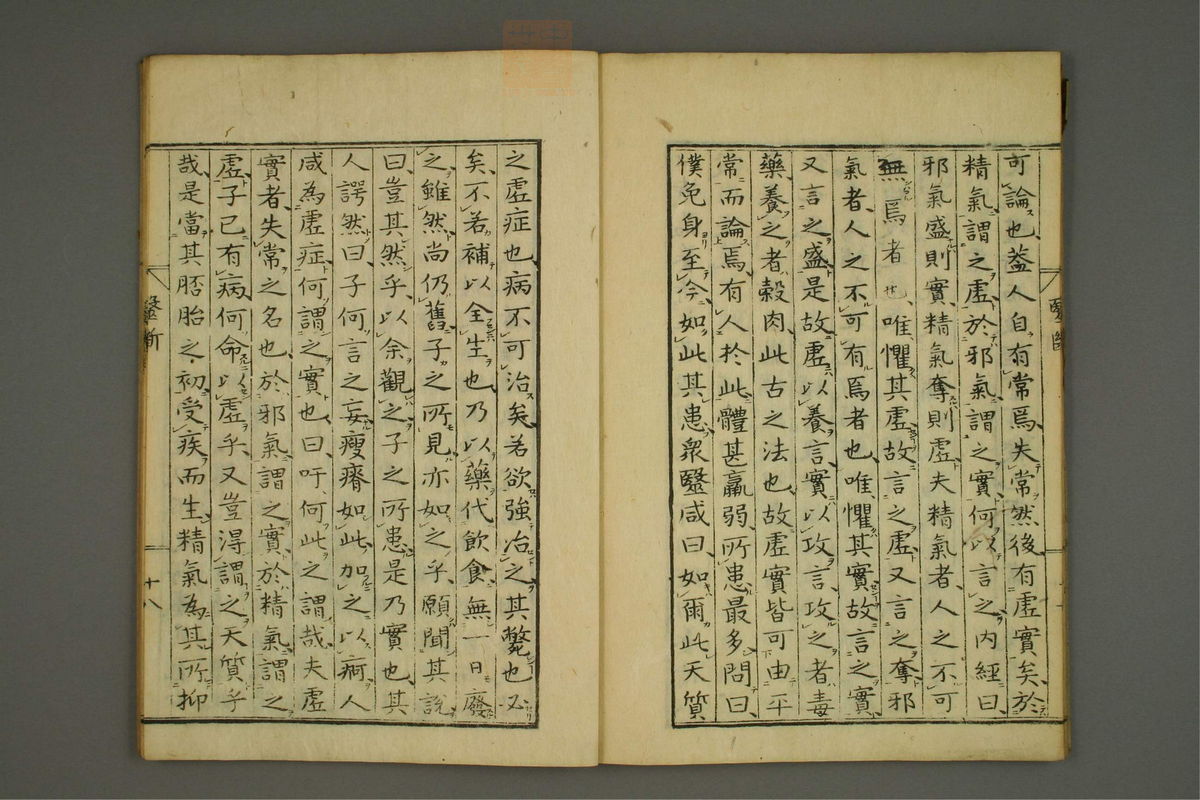 可論也蓋人自有常焉失常然後有虛實矣於
精氣謂之虛於邪氣謂之實何以言之內經曰
邪氣盛則實精氣奪則虛夫精氣者人之不可
無焉者也唯懼其虛故言之虛又言之奪邪
氣者人之不可有焉者也唯懼其實故言之實
又言之盛是故虛以養言實以攻言攻之者毒
藥養之者穀肉此古之法也故虛實皆可由平
常而論焉有人於此體甚羸弱所患最多問曰
僕免身至今如此其患衆醫咸曰如爾此天質
之虛症也病不可治矣若欲強治之其斃也必
矣不若補以全生也乃以藥代飲食無一日廢
之雖然尚仍舊子之所見亦如之乎願聞其說
曰豈其然乎以余觀之子之所患是乃實也其
人諤然曰子何言之妄瘦瘠如此加之以痾人
咸為虛症何謂之實也曰吁何此之謂哉夫虛
實者失常之名也於邪氣謂之實於精氣謂之
虛子已有病何命以虛乎又豈得謂之天質乎
哉是當其胚胎之初受疾而生精氣為其所抑
醫斷
十八